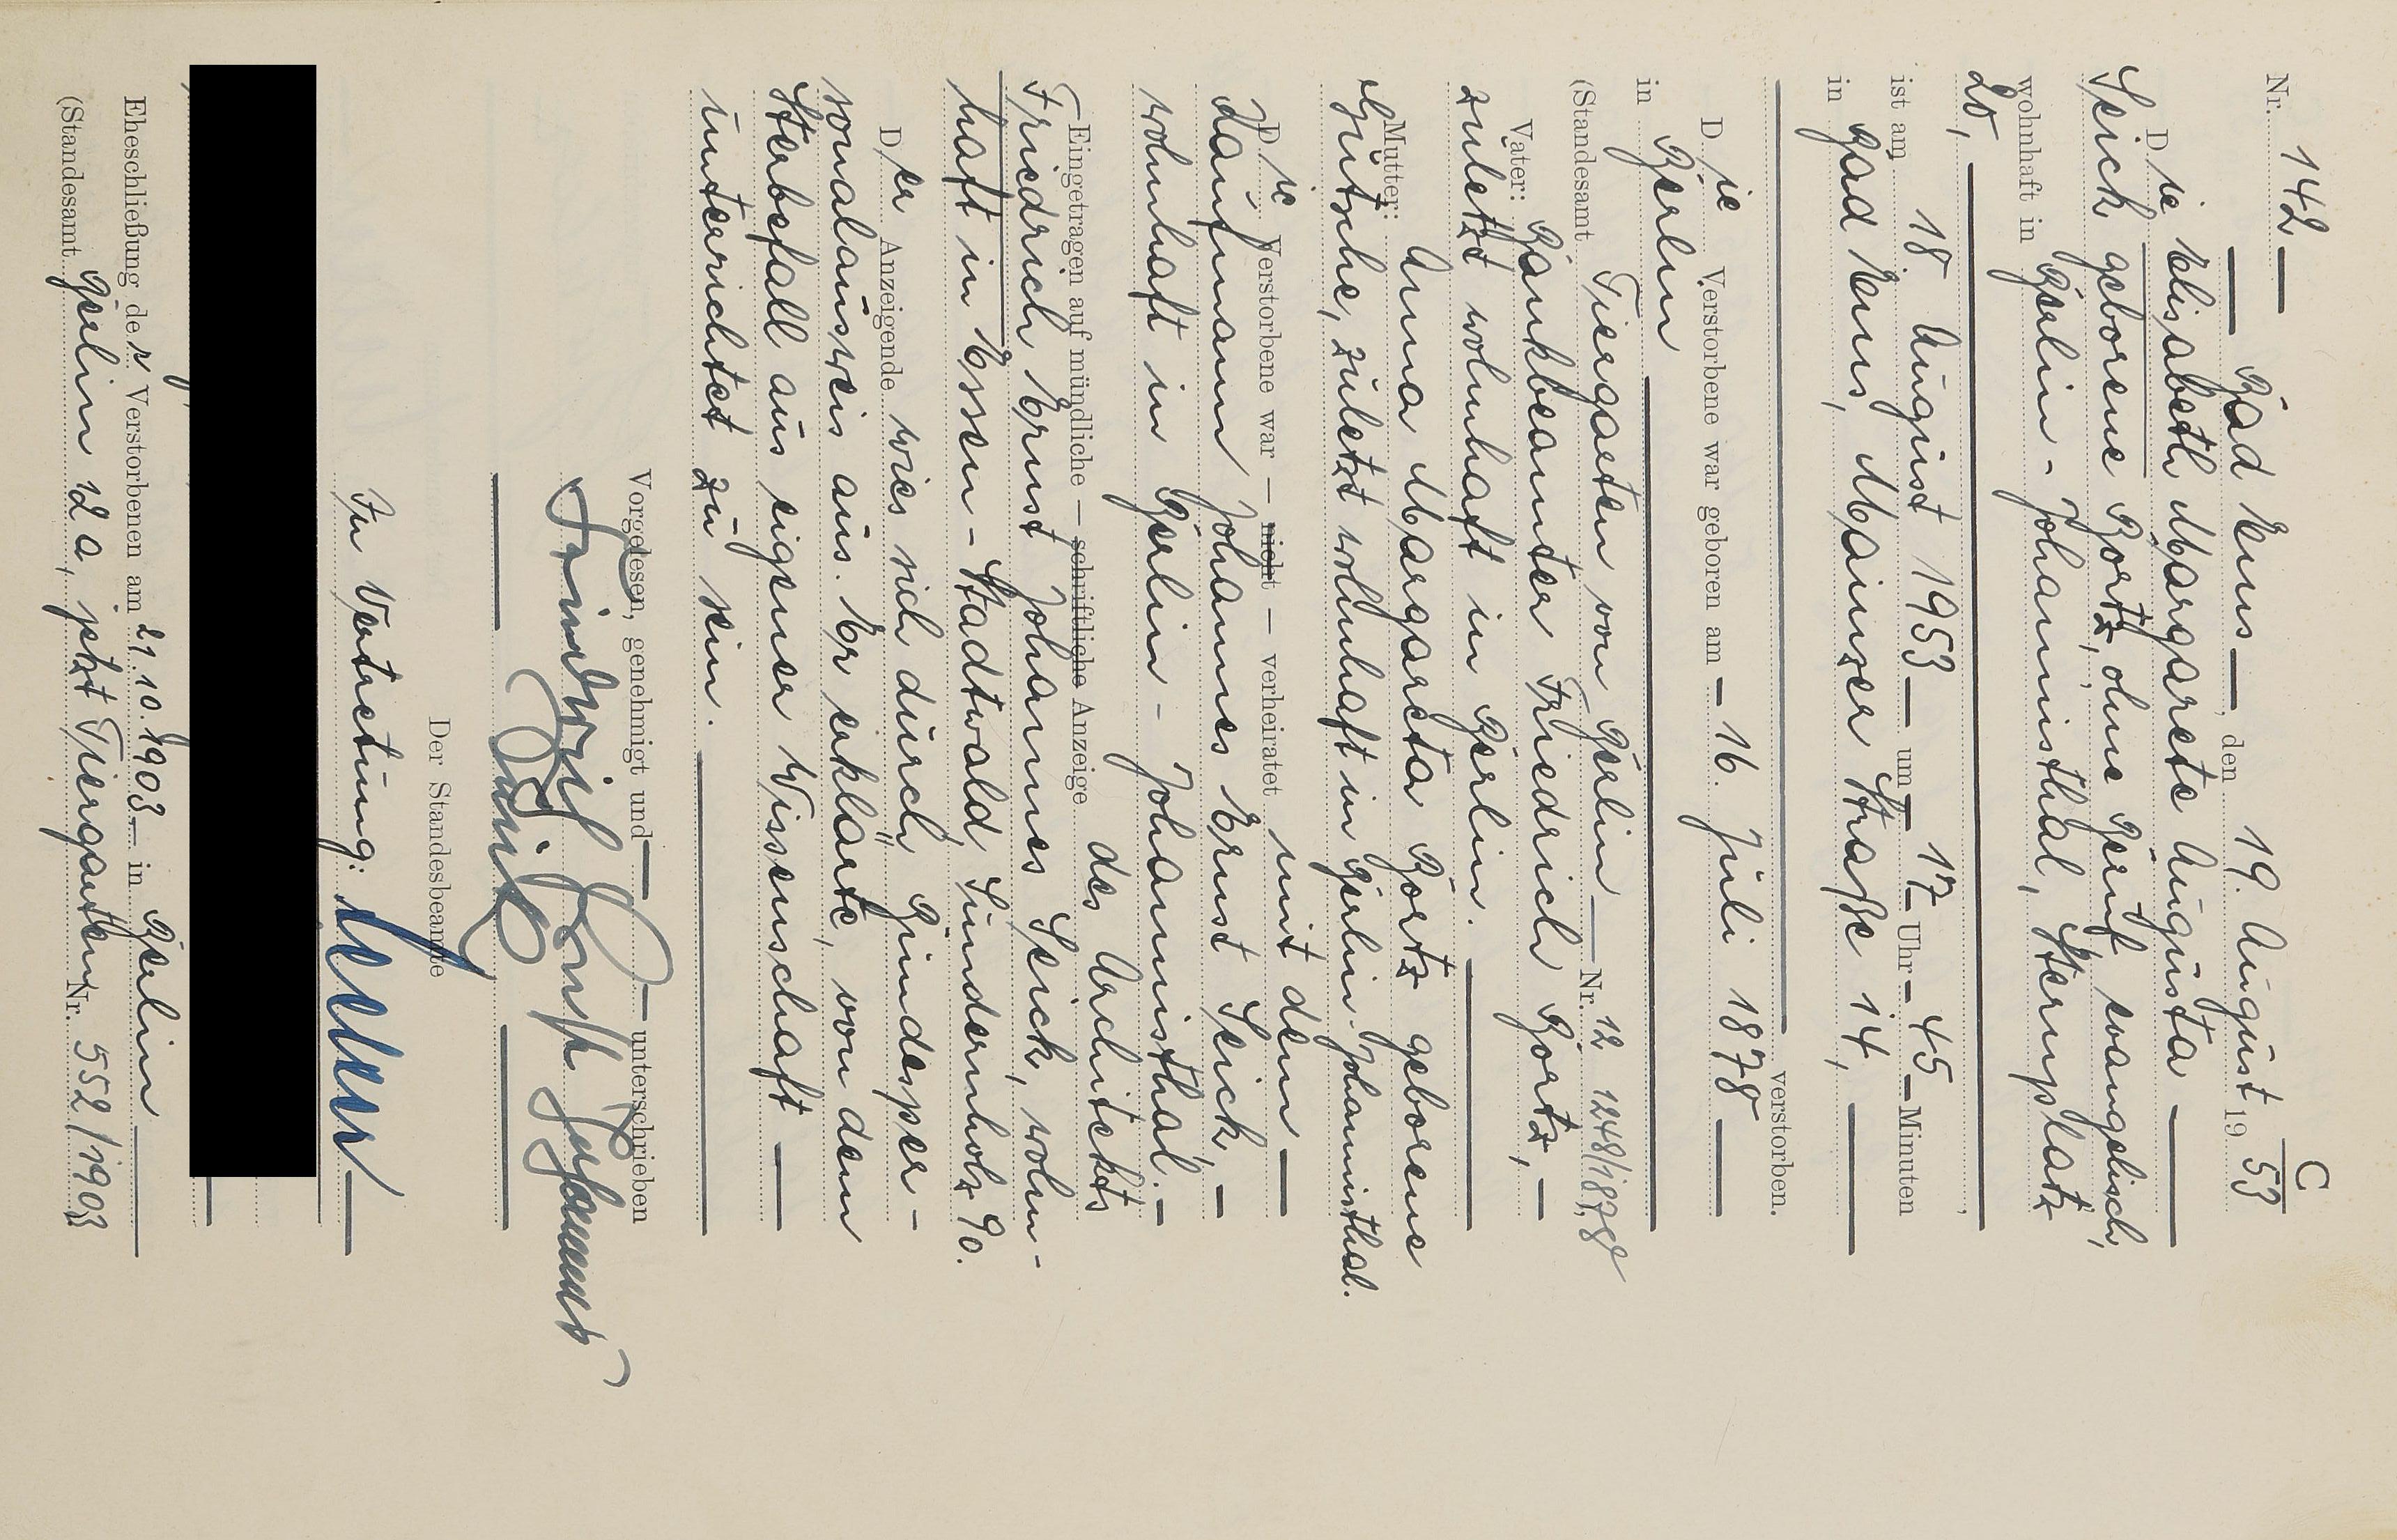 C
Nr. 142
Bad Ems, den 19. August 1953
Die Elisabeth Margarete Augusta
Seick geborene Gortz, ohne Beruf evangelisch,
wohnhaft in Berlin-Johannisthal, Sternplatz
20,
ist am 18 August 1953 um 17 Uhr 45 Minuten
in Bad Ems, Mainzer Straße 14,
verstorben.
Die Verstorbene war geboren am 16. Juli 1878
in Berlin
(Standesamt Tiergarten von Berlin Nr. 12 1248/1878
Vater: Bankbeamter Friedrich Gortz,
zuletzt wohnhaft in Berlin.
Mutter: Anna Margareta Gortz geborene
zuletzt wohnhaft in Berlin-Johannisthal.
Die Verstorbene war — nicht — verheiratet mit dem
Kaufmann Johannes Ernst Seick,
wohnhaft in Berlin-Johannisthal.
Eingetragen auf mündliche — schriftliche Anzeige des Architekts
Friedrich Ernst Johannes Seick, wohn-
haft in Essen-Stadtwald, Sundernholz 90.
Der Anzeigende wies sich durch Bundesper-
sonalausweis aus. Er erklärte, von dem
Sterbefall aus eigener Wissenschaft
unterrichtet zu sein.
Vorgelesen, genehmigt und unterschrieben
Friedrich Ernst Johannes
Seick
Der Standesbeamte
In Vertretung:
Eheschließung der Verstorbenen am 21.10.1903 in Berlin
(Standesamt Berlin 12a, jetzt Tiergarten Nr. 552/1903